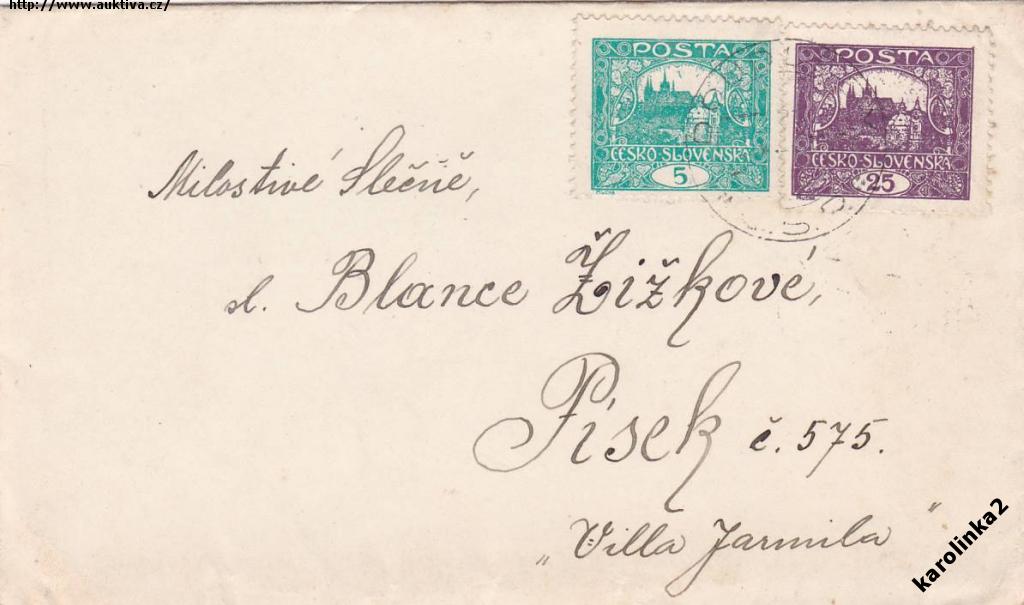 http://www.auktiva.cz/
POSTA
ČESKO-SLOVENSKÁ
5
POSTA
ČESKO-SLOVENSKÁ
25
Milostivé Slečně,
sl. Blance Žižkové,
Písek č. 575.
„Villa Jarmila"
karolinka2